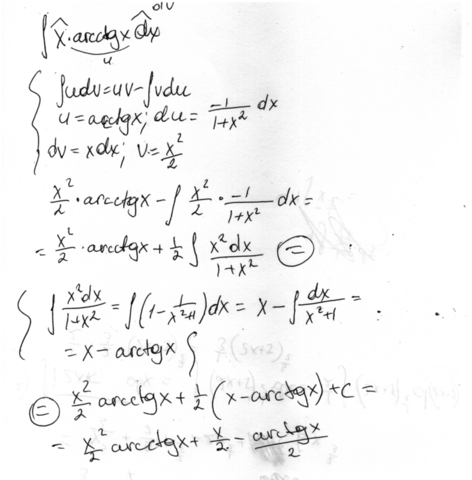 dv
∫ x · arcctgx dx
u
∫udv = uv - ∫vdu
u = arcctgx; du = -1/(1+x²) dx
dv = xdx; v = x²/2
x²/2 · arcctgx - ∫ x²/2 · -1/(1+x²) dx =
= x²/2 · arcctgx + 1/2 ∫ x²dx/(1+x²) (=)
∫ x²dx/(1+x²) = ∫(1 - 1/(x²+1))dx = x - ∫ dx/(x²+1) =
= x - arctgx
(=) x²/2 arcctgx + 1/2 (x - arctgx) + C =
= x²/2 arcctgx + x/2 - arctgx/2